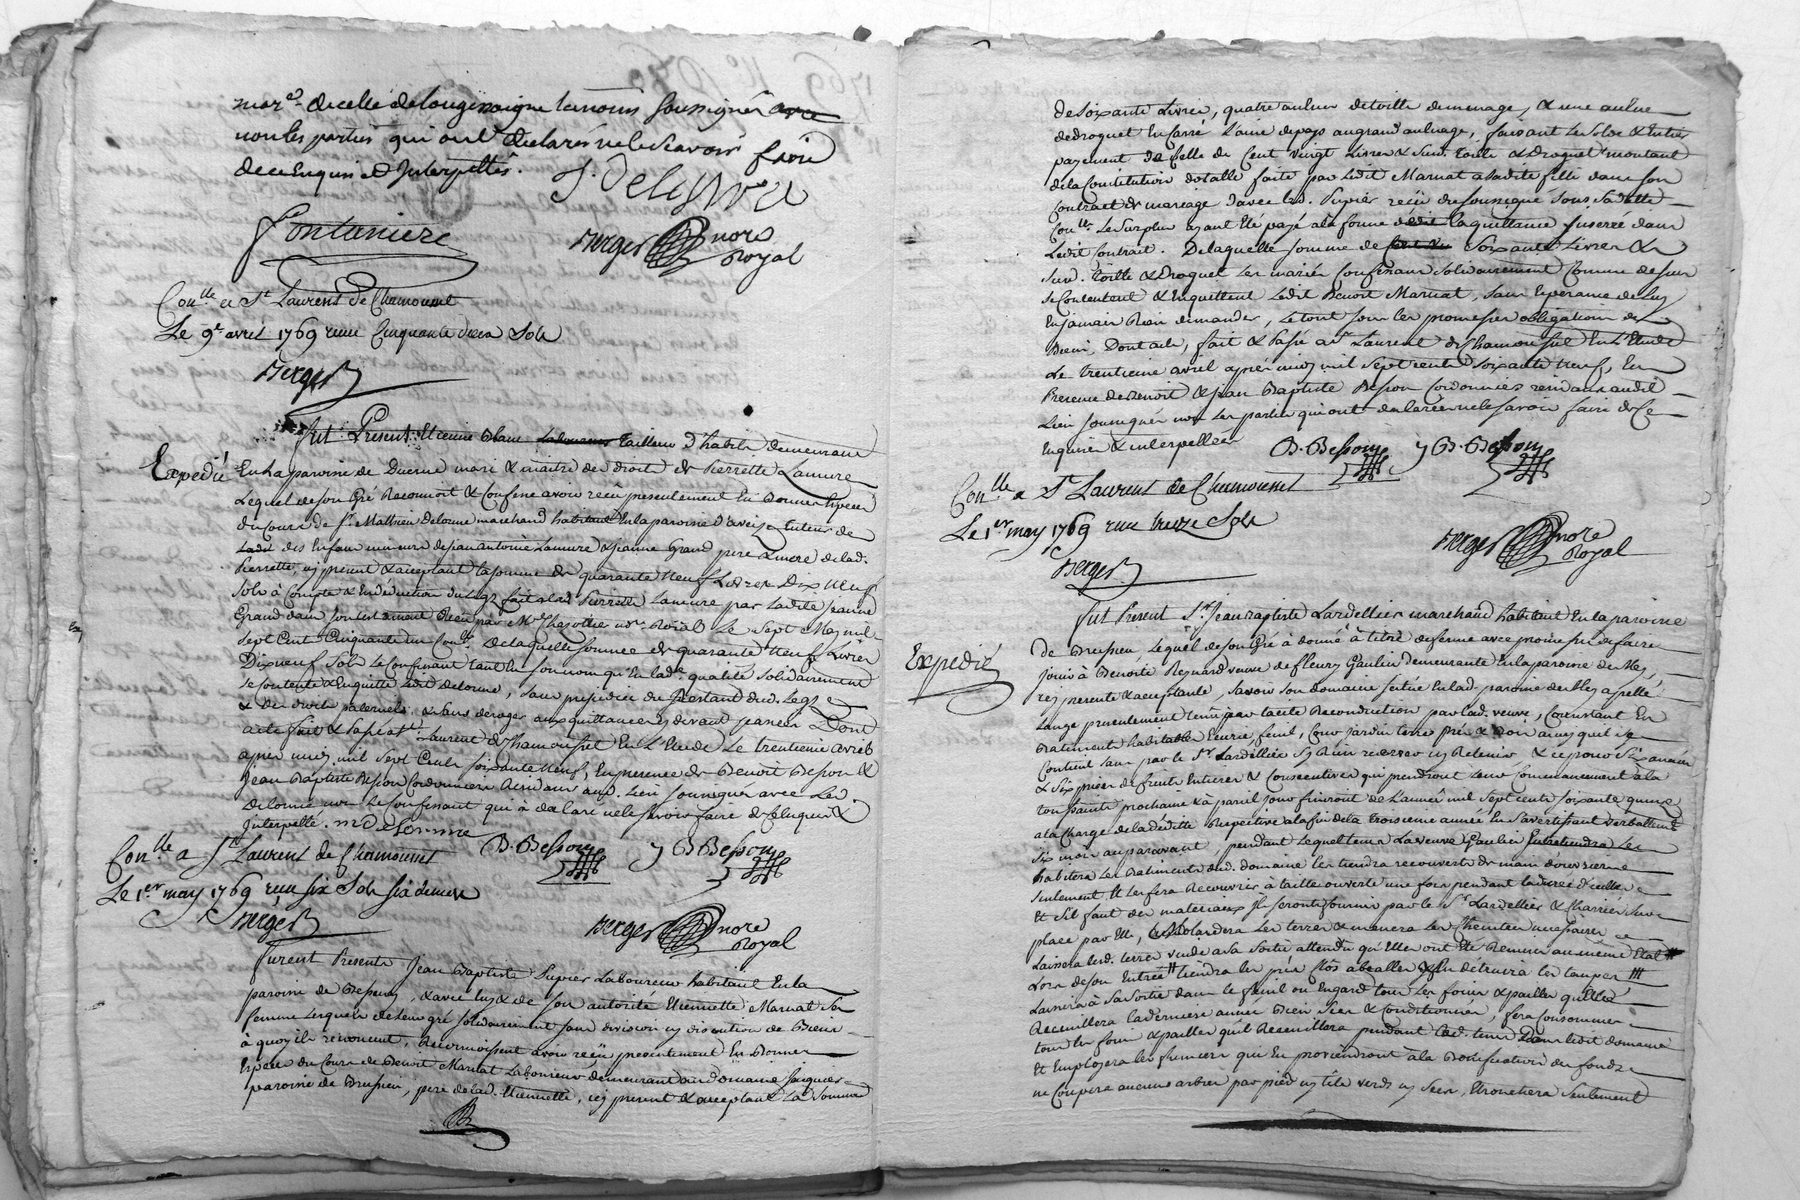 mar.és de celle de Longessaigne temoins soussignés avec
non les parties qui ont declarés ne le scavoir faire
de ce Enquis et Interpellés.
Fontaniere
Berger nore
Royal
Con.lle a St Laurent de Chamousset
Le 9e avril 1769 reçu Cinquante deux Sols
Berger
fut Present Etienne Blanc Laboureur tailleur d'habits demeurant
Expedié
En La paroisse de Duerne mari & maitre des droits de Pierrette Lamure
Lequel de son Gré Reconnoit & Confesse avoir reçu presentement En Bonnes Especes
du cours de Sr. Mathieu Delorme marchand habitant En la paroisse d'aveize tuteur de
Ladit des Enfans mineurs de Jean antoine Lamure & Jeanne Grand pere & mere de lad.
Pierrette, cy present & acceptant la somme de quarante neuf Livres Dix Neuf
Sols à Compte & En deduction du Legs fait a lad. Pierrette Lamure par Ladite Jeanne
Grand dans son testament Reçu par Me Chazotte nore Roial Le Sept May mil
Sept Cent Cinquante un Con.lé. De laquelle somme de quarante Neuf Livres
Dix neuf Sols Le Confessant tant En son nom qu'En lad. qualité solidairement
se contente & Enquitte Ledit Delorme, sans prejudice du Restant dud. Legs
& des droits paternels & sans deroger aux quittances cy devant passées Dont
acte fait & Passé a St. Laurent de Chamousset En L'Etude Le trentieme avril
apres midy mil Sept Cents soixante neuf, En presence de Benoit Besson &
Jean Baptiste Besson Cordonniers Residans aud. Lieu soussignés avec Led.
Delorme non Le Confessant qui à declaré ne le scavoir faire de ce Enquis &
Interpellé. M Delorme
B. Besson J B Besson
Con.lle a St Laurent de Chamousset
Le 1er may 1769 reçu six Sols six deniers
Berger
Berger nore
Royal
furent Presents Jean Baptiste Pupier Laboureur habitant En la
paroisse de Bessenay, & avec luy & de son autorité Etiennette Marnat Sa
femme Lesquels de Leur gré solidairement sans division ny discution de Biens
à quoy ils renoncent, Reconnoissent avoir reçu presentement En Bonnes
Especes du Cours de Benoit Marnat Laboureur demeurant au Domaine Jacquier
paroisse de Brussieu, pere de lad. Etiennette, icy present & acceptant La Somme
de soixante Livres, quatre aulnes de toille de menage, & une aulne
de droguet En Carré L'aune de pays au grand aulnage, faisant Le Solde & Entier
payement de Celle de Cent vingt Livres & susd. toille & Droguet montant
de la Constitution dotalle faite par Ledit Marnat a sadite fille dans son
Contrat de mariage d'avec led. Pupier reçu du soussigné sous sa datte
Con.lle Le Surplus ayant Eté payé a la forme de la quittance Inserée dans
Ledit Contrait. De laquelle somme de Soixante Livres &
susd. toille & Droguet Les mariés Confessans solidairement Comme dessus
se Contentent & Enquittent Ledit Benoit Marnat, sans Esperance de Luy
En jamais Rien demander, Le tout sous Les promesses obligations de
Biens, Dont acte, fait & Passé a St Laurent de Chamousset En L'Etude
Le trentieme avril apres midy mil Sept cents soixante neuf, En
Presence de Benoit & Jean Baptiste Besson Cordonniers residans audit
Lieu soussignés non Les parties qui ont declarées ne le scavoir faire de Ce
Enquises & interpellées
B. Besson J B. Besson
Con.lle a St Laurent de Chamousset
Le 1er may 1769 reçu treize Sols
Berger
Berger nore
Royal
fut Present Sr. Jean Baptiste Lardellier marchand habitant En la paroisse
Expedié
de Brussieu, Lequel de son Gré à donné à titre de ferme avec promesse de faire
jouir à Benoite Reynard veuve de fleury Gaulin demeurante En la paroisse de
icy presente & acceptante, savoir son domaine scitué En lad. paroisse appellé
Lange presentement tenu par tacite Reconduction par lad. veuve, Consistant En
Batiments habitable Ecurie, fenil, Cour jardin terres prés & Bois ainsy qu'il se
Contient sans par le Sr Lardellier s'y Rien reserver ny Retenir & ce pour six années
& six prises de fruits Entieres & Consecutives qui prendront Leur Commencement à la
toussaints prochaine & à pareil jour finiront de L'année mil sept cents soixante quinze
a la charge de la dédite Respective a la fin de la troisieme année En S'avertissant verballement
six mois auparavant, pendant Lequel tems La veuve Gaulin Entretiendra Les
habitera Les Batiments dud. domaine les tiendra recouverts de main d'ouvriers
seulement Et les fera Recouvrir à taille ouverte une fois pendant la durée d'icelle
Et s'il faut des materiaux Ils seront fournis par le Sr Lardellier & Charriés sur
place par Elle, Laissera Lesd. terres vuide a sa sortie attendu qu'Elle ont Eté Remises au meme Etat
Lors de son Entrée tiendra les prés Clos & En detruira les taupes
Laissera à sa sortie dans le fenil ou Engard tous Les foins & pailles qu'Elle
Receuillera la derniere année Bien Secs & Conditionnés, fera Consommer
tous les foins & pailles qu'il Receuillera pendant led. tems Dans ledit domaine
Et Employera les fumiers qui En proviendront à la Bonification du fonds
ne Coupera aucuns arbres par pied ny tête verds ny Secs, Etronchera Seulement